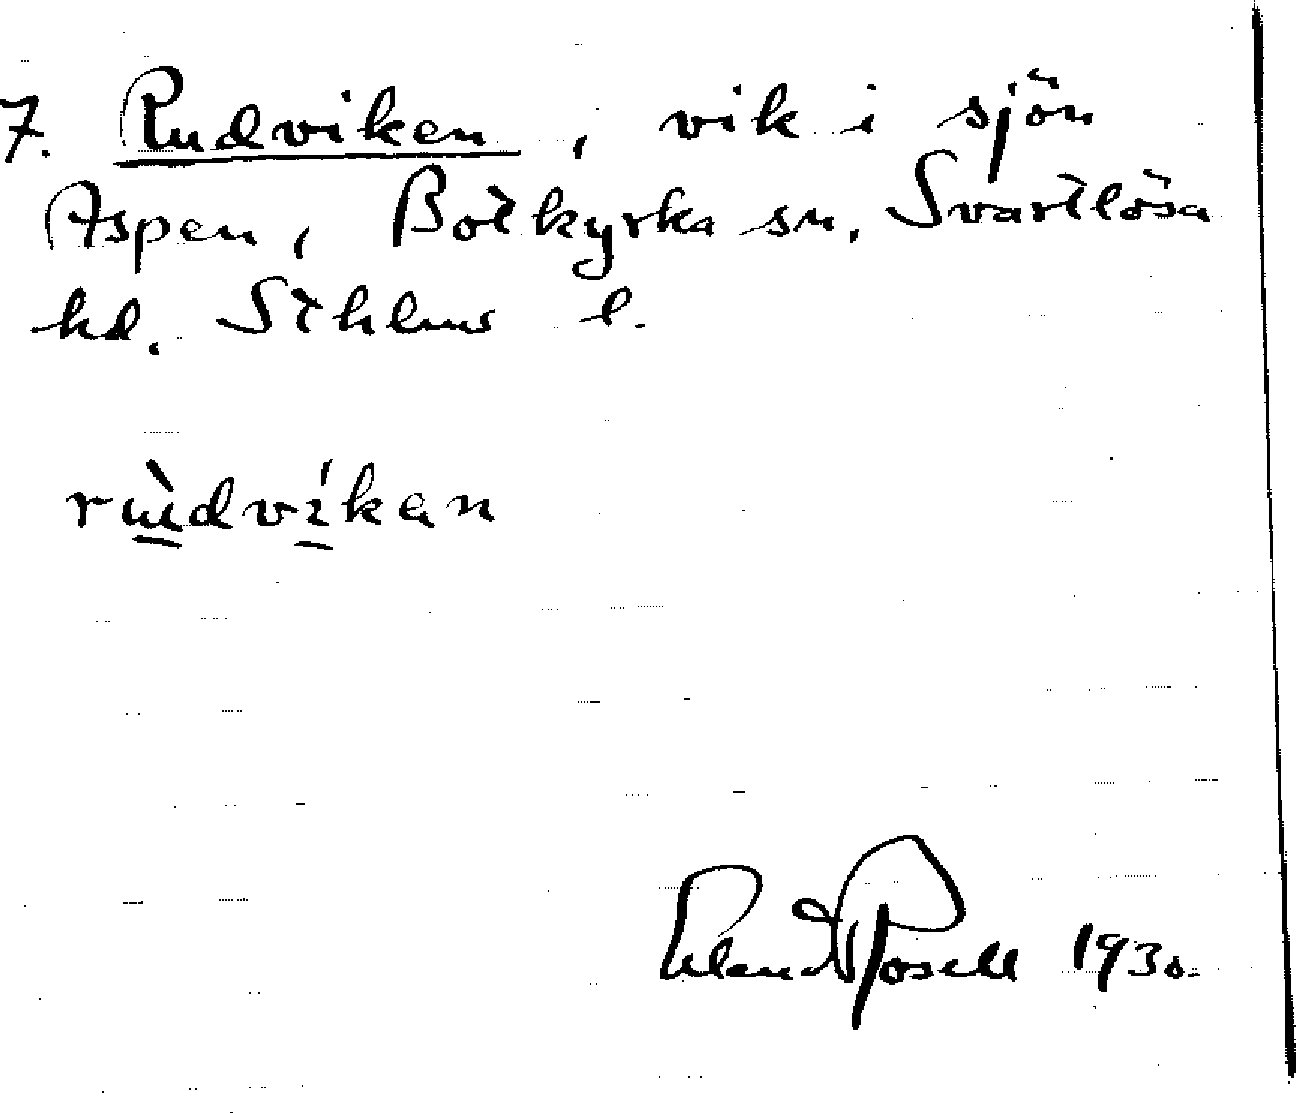 7. Rudviken, vik i sjön
Aspen, Botkyrka sn, Svartlösa
hd. Sthlms l.
rùdvíkan
Erland Rosell 1930.